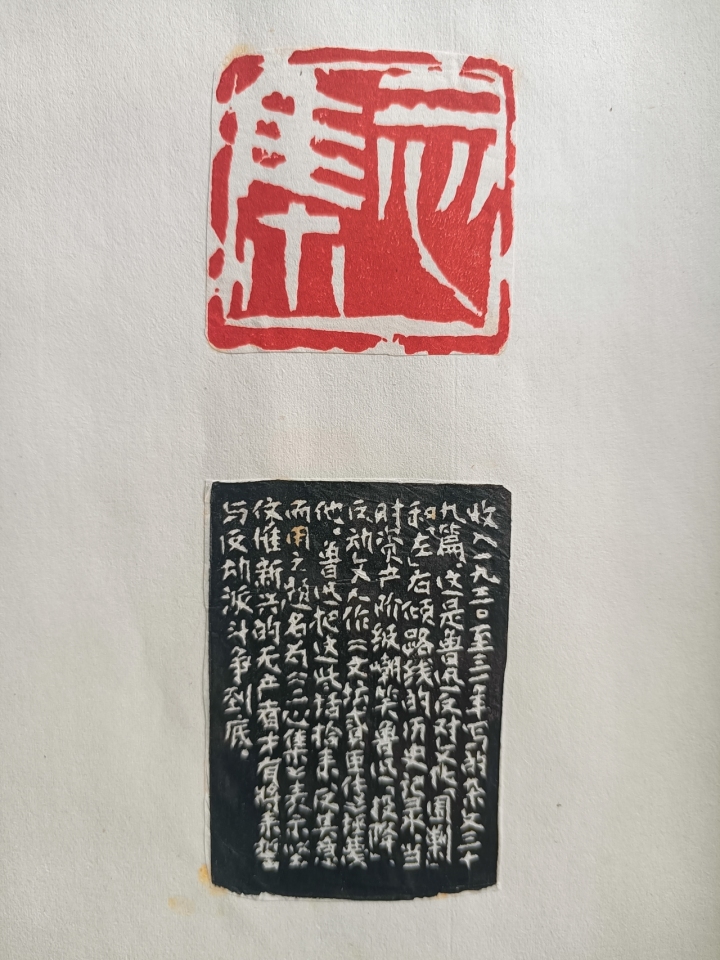 二心集
收入一九三〇至三一年写的杂文三十
九篇。这是鲁迅反对文化「围剿」
和「左」右倾路线的历史记录。当
时资产阶级嘲笑鲁迅「投降」,
反动文人作《文坛贰臣传》诬蔑
他。鲁迅把这些话拾来,反其意
而用之,题名为《二心集》表示坚
信惟新兴的无产者才有将来誓
与反动派斗争到底。